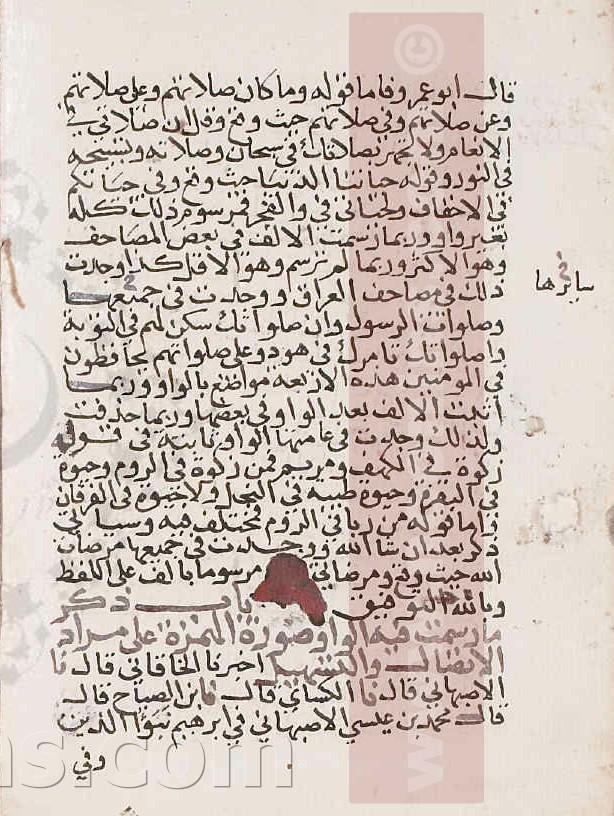 قال ابو عمرو فاما قوله وما كان صلاتهم وعلى صلاتهم
وعن صلاتهم وفي صلاتهم حيث وقع وقل ان صلاتي في
الانعام ولا تجهر بصلاتك في سبحان وصلاته وتسبيحه
في النور وقوله حياتنا الدنيا حيث وقع وفي حياتكم
في الاحقاف ولحياتي في والفجر فمرسوم ذلك كله
بغير واو وربما رسمت الالف في بعض المصاحف
وهو الاكثر وربما لم ترسم وهو الاقل كذا وجدت
ذلك في مصاحف العراق ووجدت في جميعها
سائرها
وصلوات الرسول وان صلواتك سكن لهم في التوبة
واصلواتك تامرك في هود وعلى صلواتهم يحافظون
في المومنين هذه الاربعة مواضع بالواو وربما
اثبتت الالف بعد الواو في بعضها وربما حذفت
وكذلك وجدت في عامتها الواو ثابتة في قوله
زكوة في الكهف ومريم ومن زكوة في الروم وحيوة
في البقرة وحيوة طيبة في النحل ولا حيوة في الفرقان
واما قوله من ربا في الروم فمختلف فيه وسياتي
ذكر بعد ان شا الله ووجدت في جميعها مرضات
الله حيث وقع ومرضاتي مرسوما بالف على اللفظ
وبالله التوفيق باب ذكر
ما رسمت فيه الواو صورة للهمزة على مراد
الاتصال والتسهيل اخبرنا الخاقاني قال نا
الاصبهاني قال نا الكسائي قال نا ابن الصباح قال
قال محمد بن عيسى الاصبهاني في ابرهيم نبؤا الذين
وفي
ns.com
www